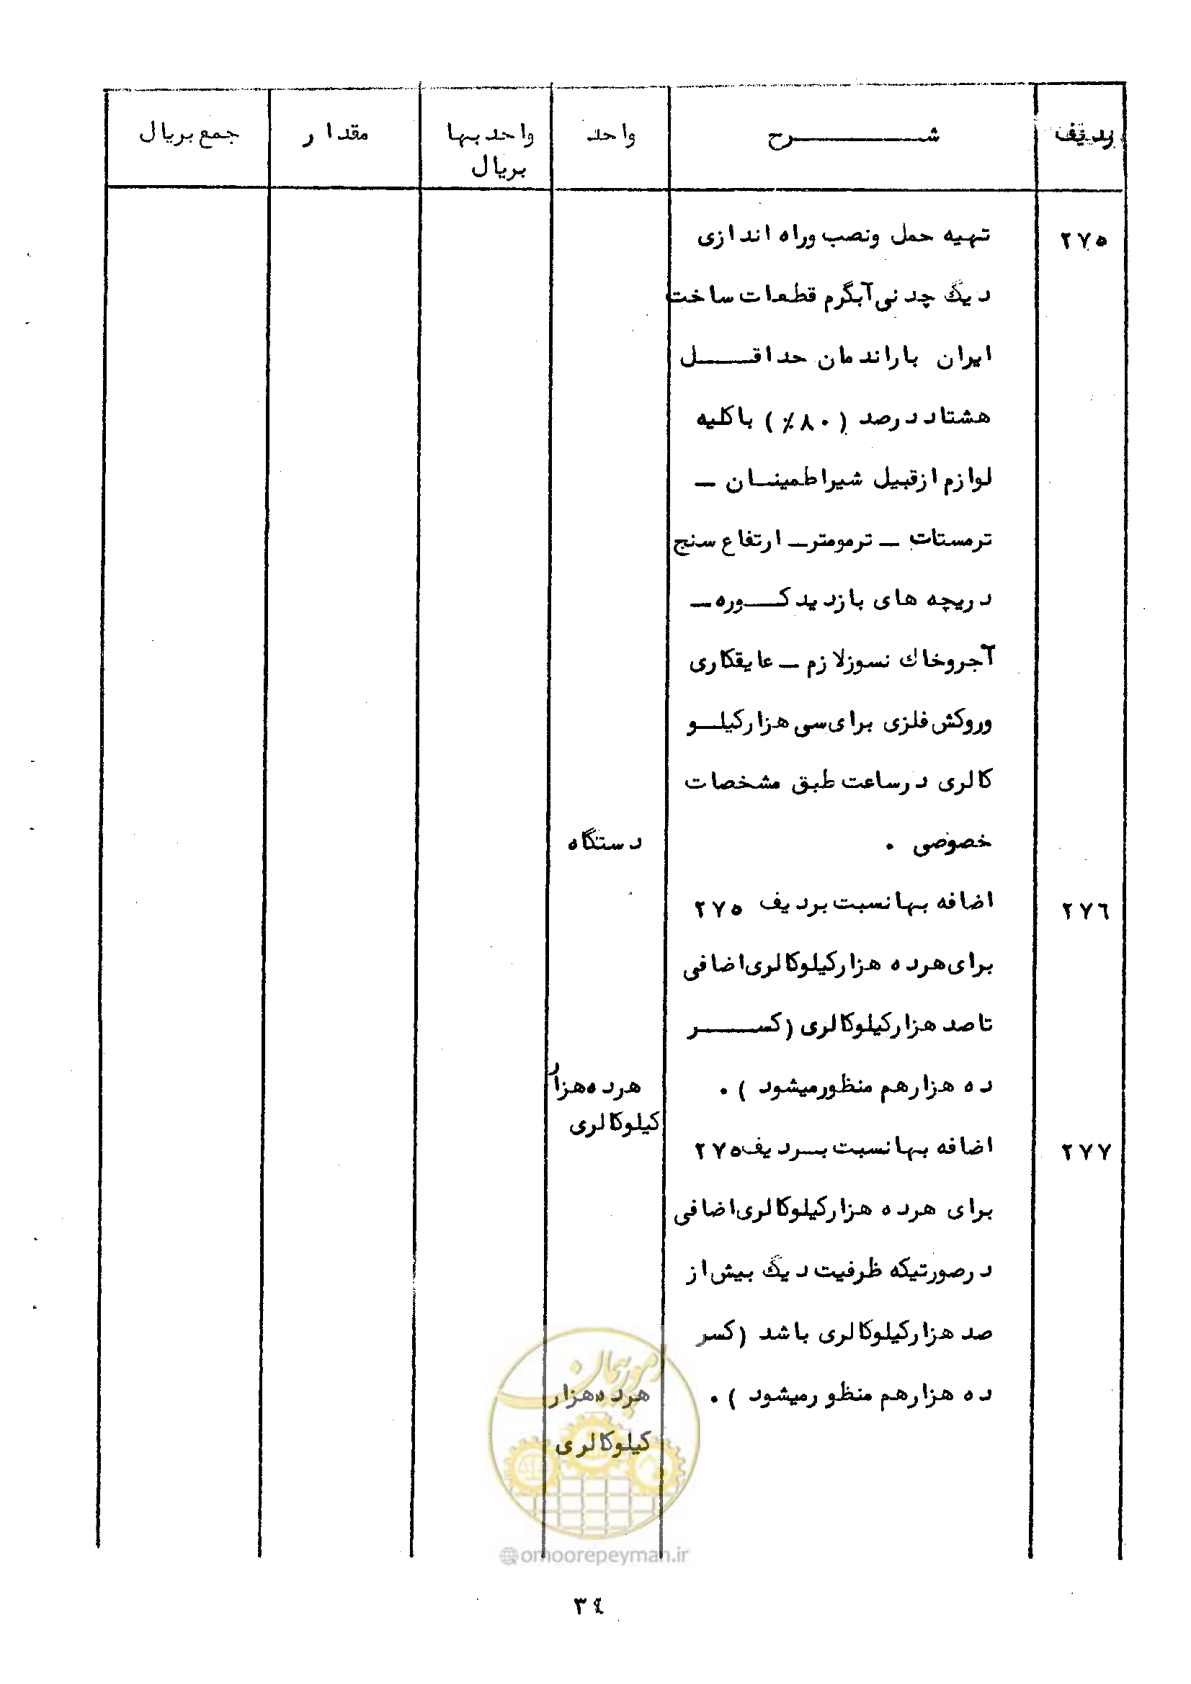 ردیف شرح واحد واحد بها مقدار جمع بریال
بریال
۲۷۵ تهیه حمل ونصب وراه اندازی
دیگ چدنی آبگرم قطعات ساخت
ایران باراندمان حداقل
هشتاد درصد (۸۰٪) باکلیه
لوازم ازقبیل شیراطمینان –
ترمستات – ترمومتر – ارتفاع سنج
دریچه های بازدید کوره –
آجروخاك نسوزلازم – عایقکاری
وروکش فلزی برای سی هزارکیلو
کالری درساعت طبق مشخصات
خصوصی . دستگاه
۲۷۶ اضافه بها نسبت بردیف ۲۷۵
برای هرده هزارکیلوکالری اضافی
تاصد هزارکیلوکالری (کسر
ده هزارهم منظورمیشود ) . هرده هزار
کیلوکالری
۲۷۷ اضافه بها نسبت بردیف ۲۷۵
برای هرده هزارکیلوکالری اضافی
درصورتیکه ظرفیت دیگ بیش از
صد هزارکیلوکالری باشد (کسر
ده هزارهم منظورمیشود ) . هرده هزار
کیلوکالری
امور پیمان
@omoorepeyman.ir
۳٤